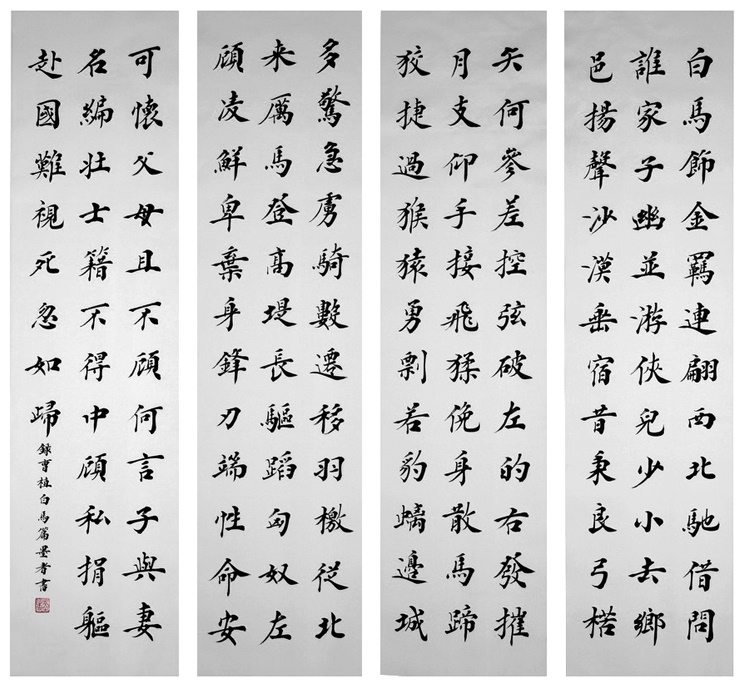 白馬飾金羈連翩西北馳借問
誰家子幽並游俠兒少小去鄉
邑揚聲沙漠垂宿昔秉良弓楛
矢何參差控弦破左的右發摧
月支仰手接飛猱俛身散馬蹄
狡捷過猴猿勇剽若豹螭邊城
多驚急虜騎數遷移羽檄從北
来厲馬登高堤長驅蹈匈奴左
顧凌鮮卑棄身鋒刃端性命安
可懷父母且不顧何言子與妻
名編壯士籍不得中顧私捐軀
赴國難視死忽如歸
錄曹植白馬篇書